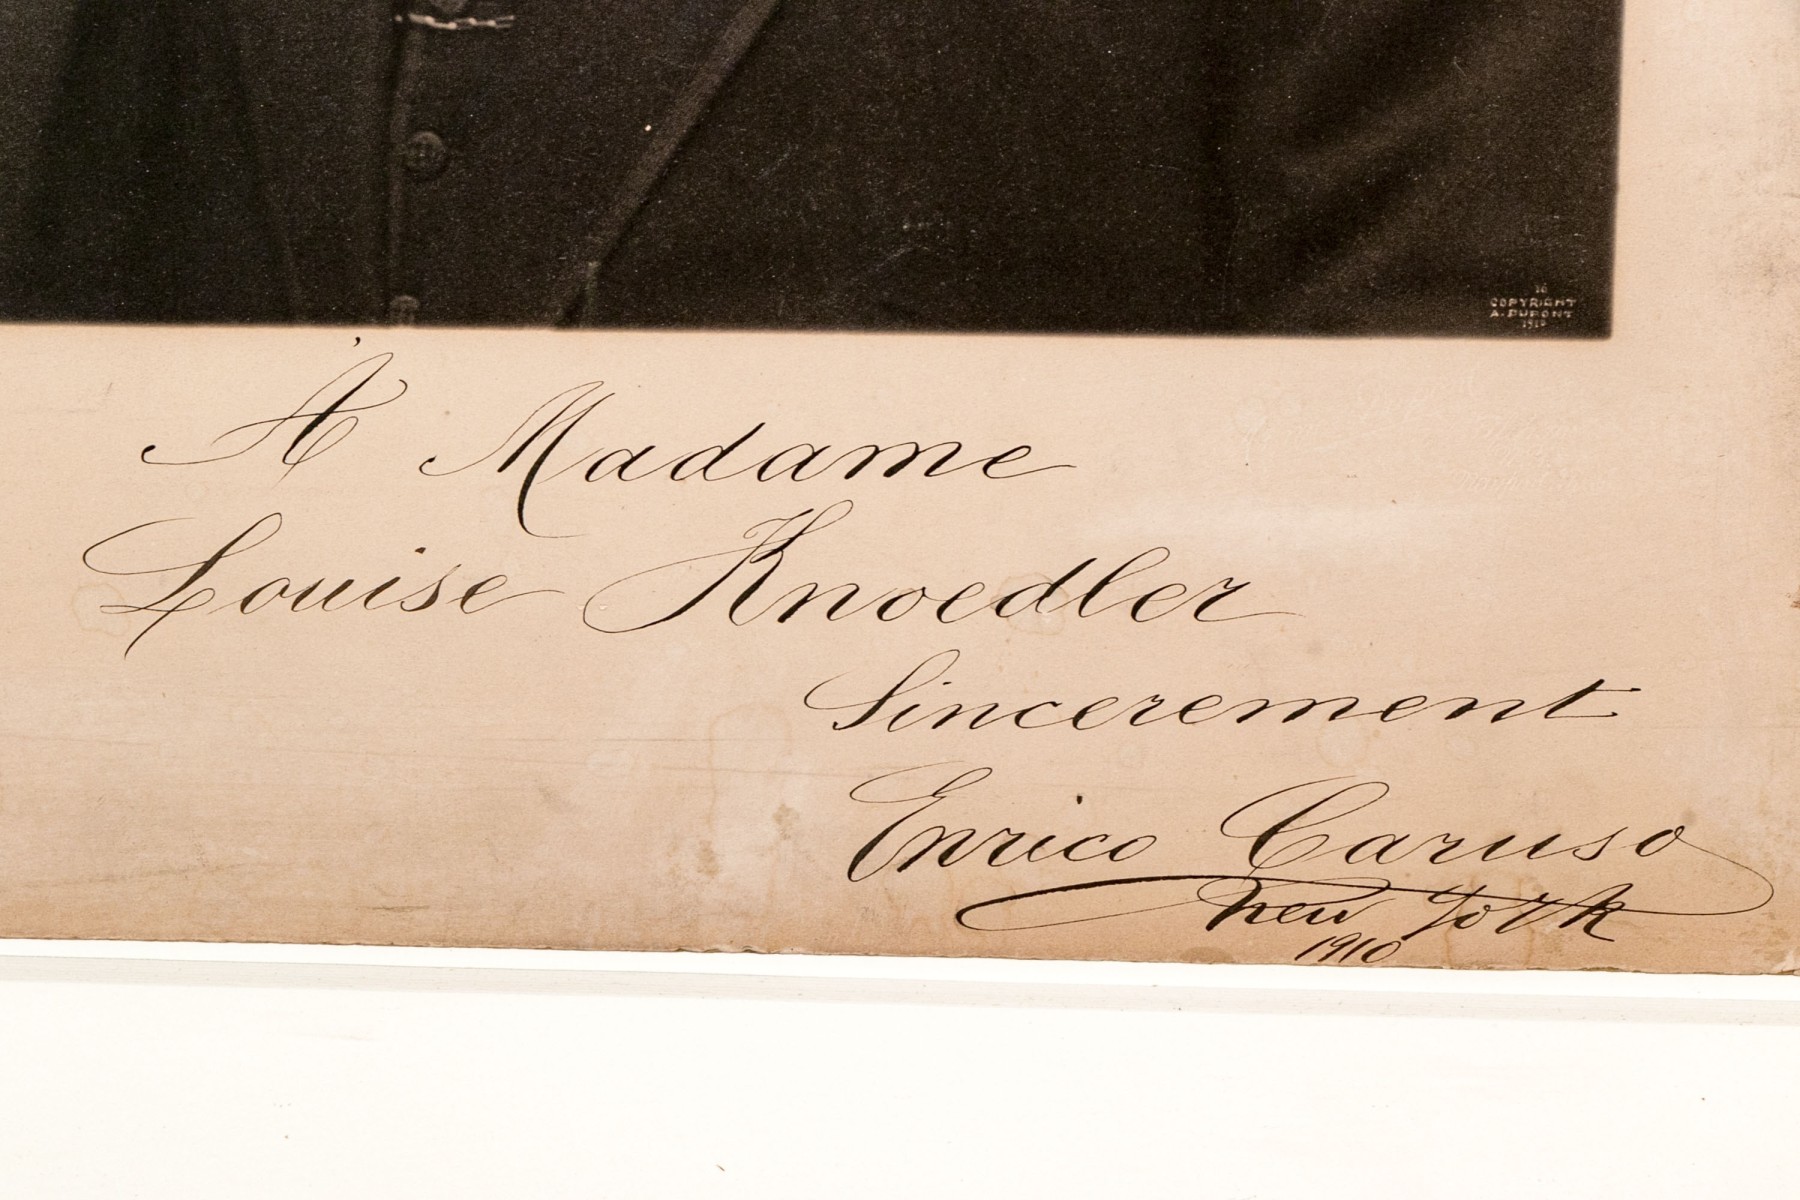 16
COPYRIGHT
A. DUPONT
1910
À Madame
Louise Knoedler
Sincerement
Enrico Caruso
New York
1910